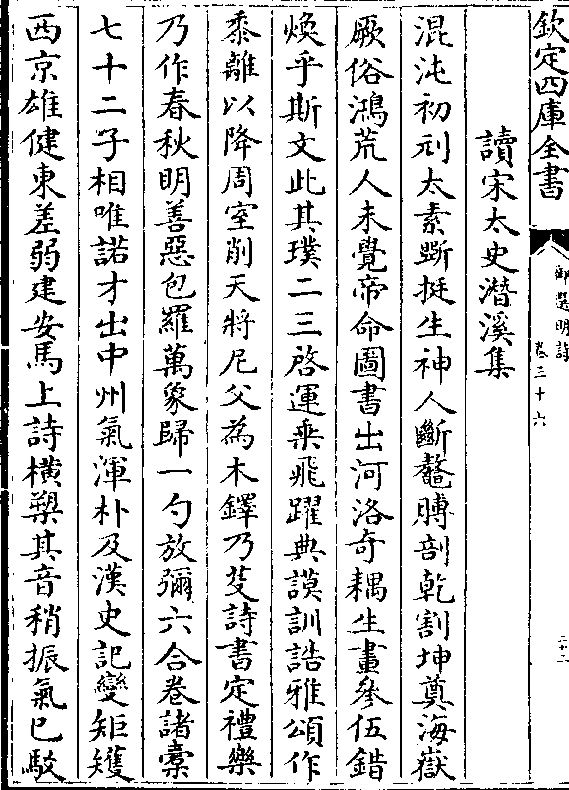 欽定四庫全書
御選明詩
卷三十六
二十二
讀宋太史潛溪集
混沌初刓太素斲挺生神人斷鼇膊剖乾割坤奠海嶽
厥俗鴻荒人未覺帝命圖書出河洛奇耦生畫參伍錯
煥乎斯文此其璞二三啓運乘飛躍典謨訓誥雅頌作
黍離以降周室削天將尼父為木鐸乃芟詩書定禮樂
乃作春秋明善惡包羅萬象歸一勺放彌六合卷諸橐
七十二子相唯諾才出中州氣渾朴及漢史記變矩矱
西京雄健東差弱建安馬上詩橫槊其音稍振氣已駁